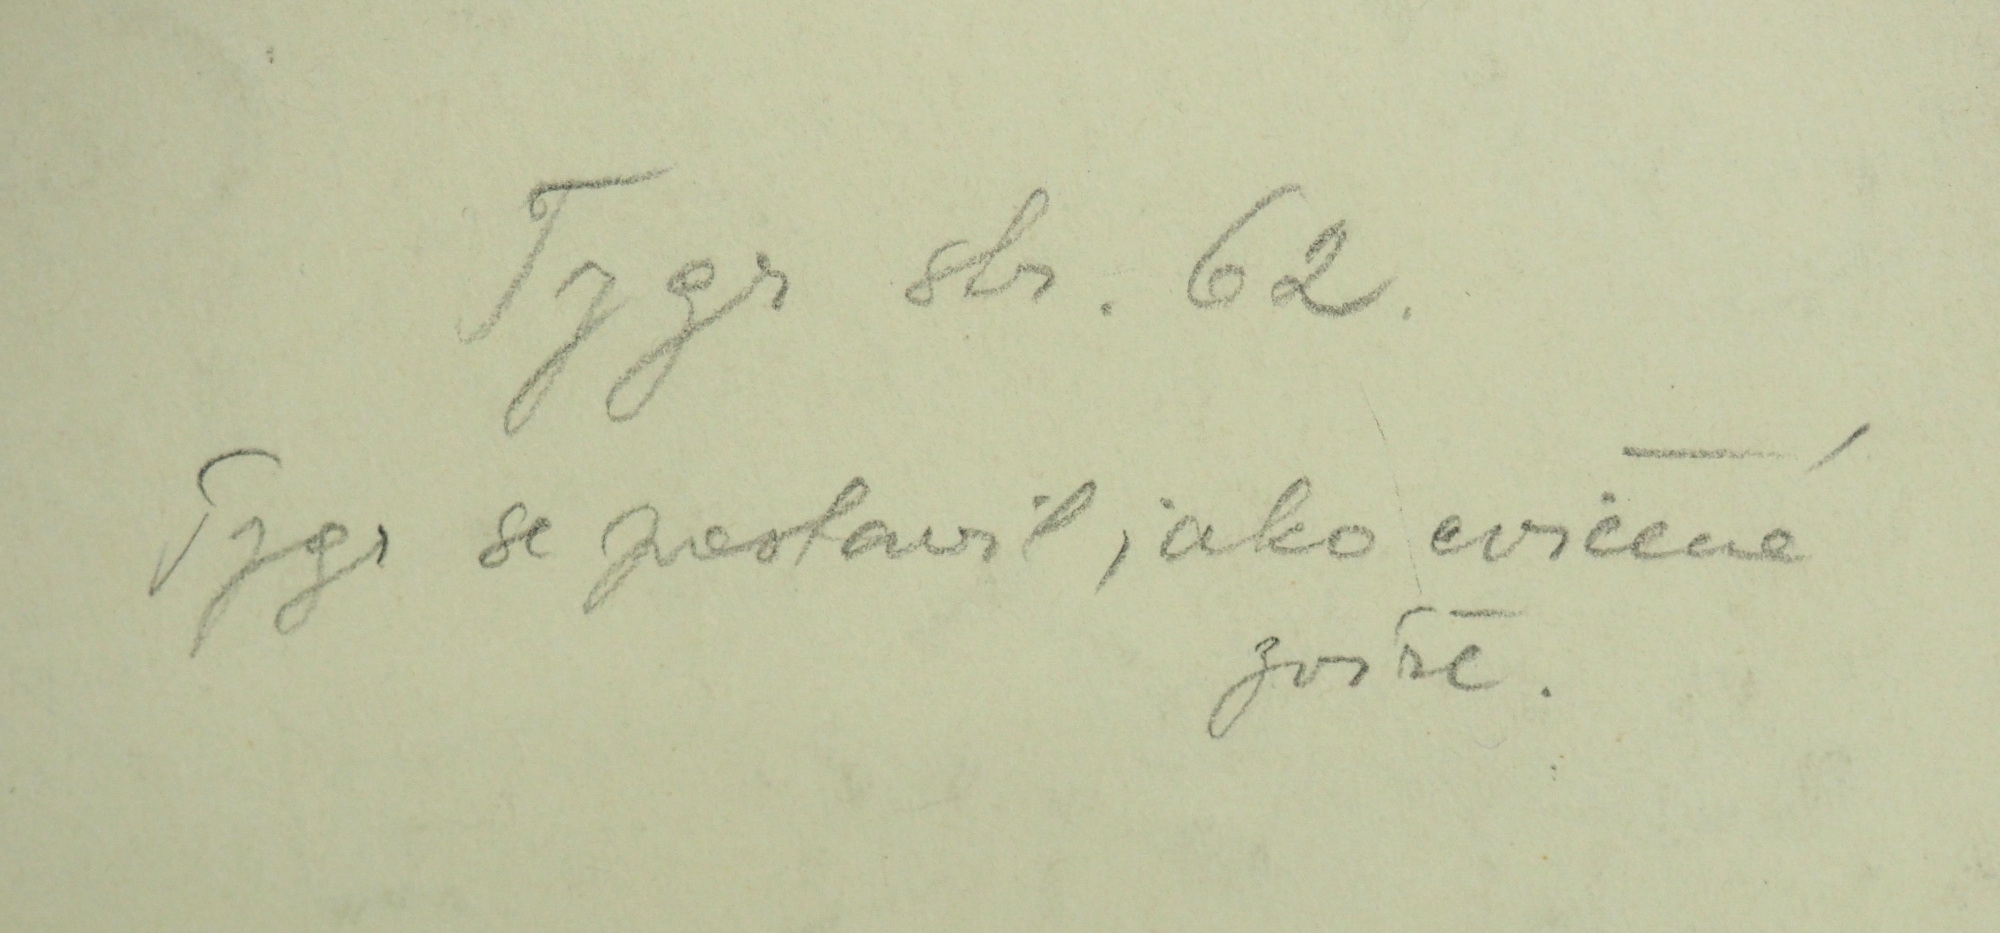 Tygr str. 62.
Tygr se postavil, jako cvičené
zvíře.